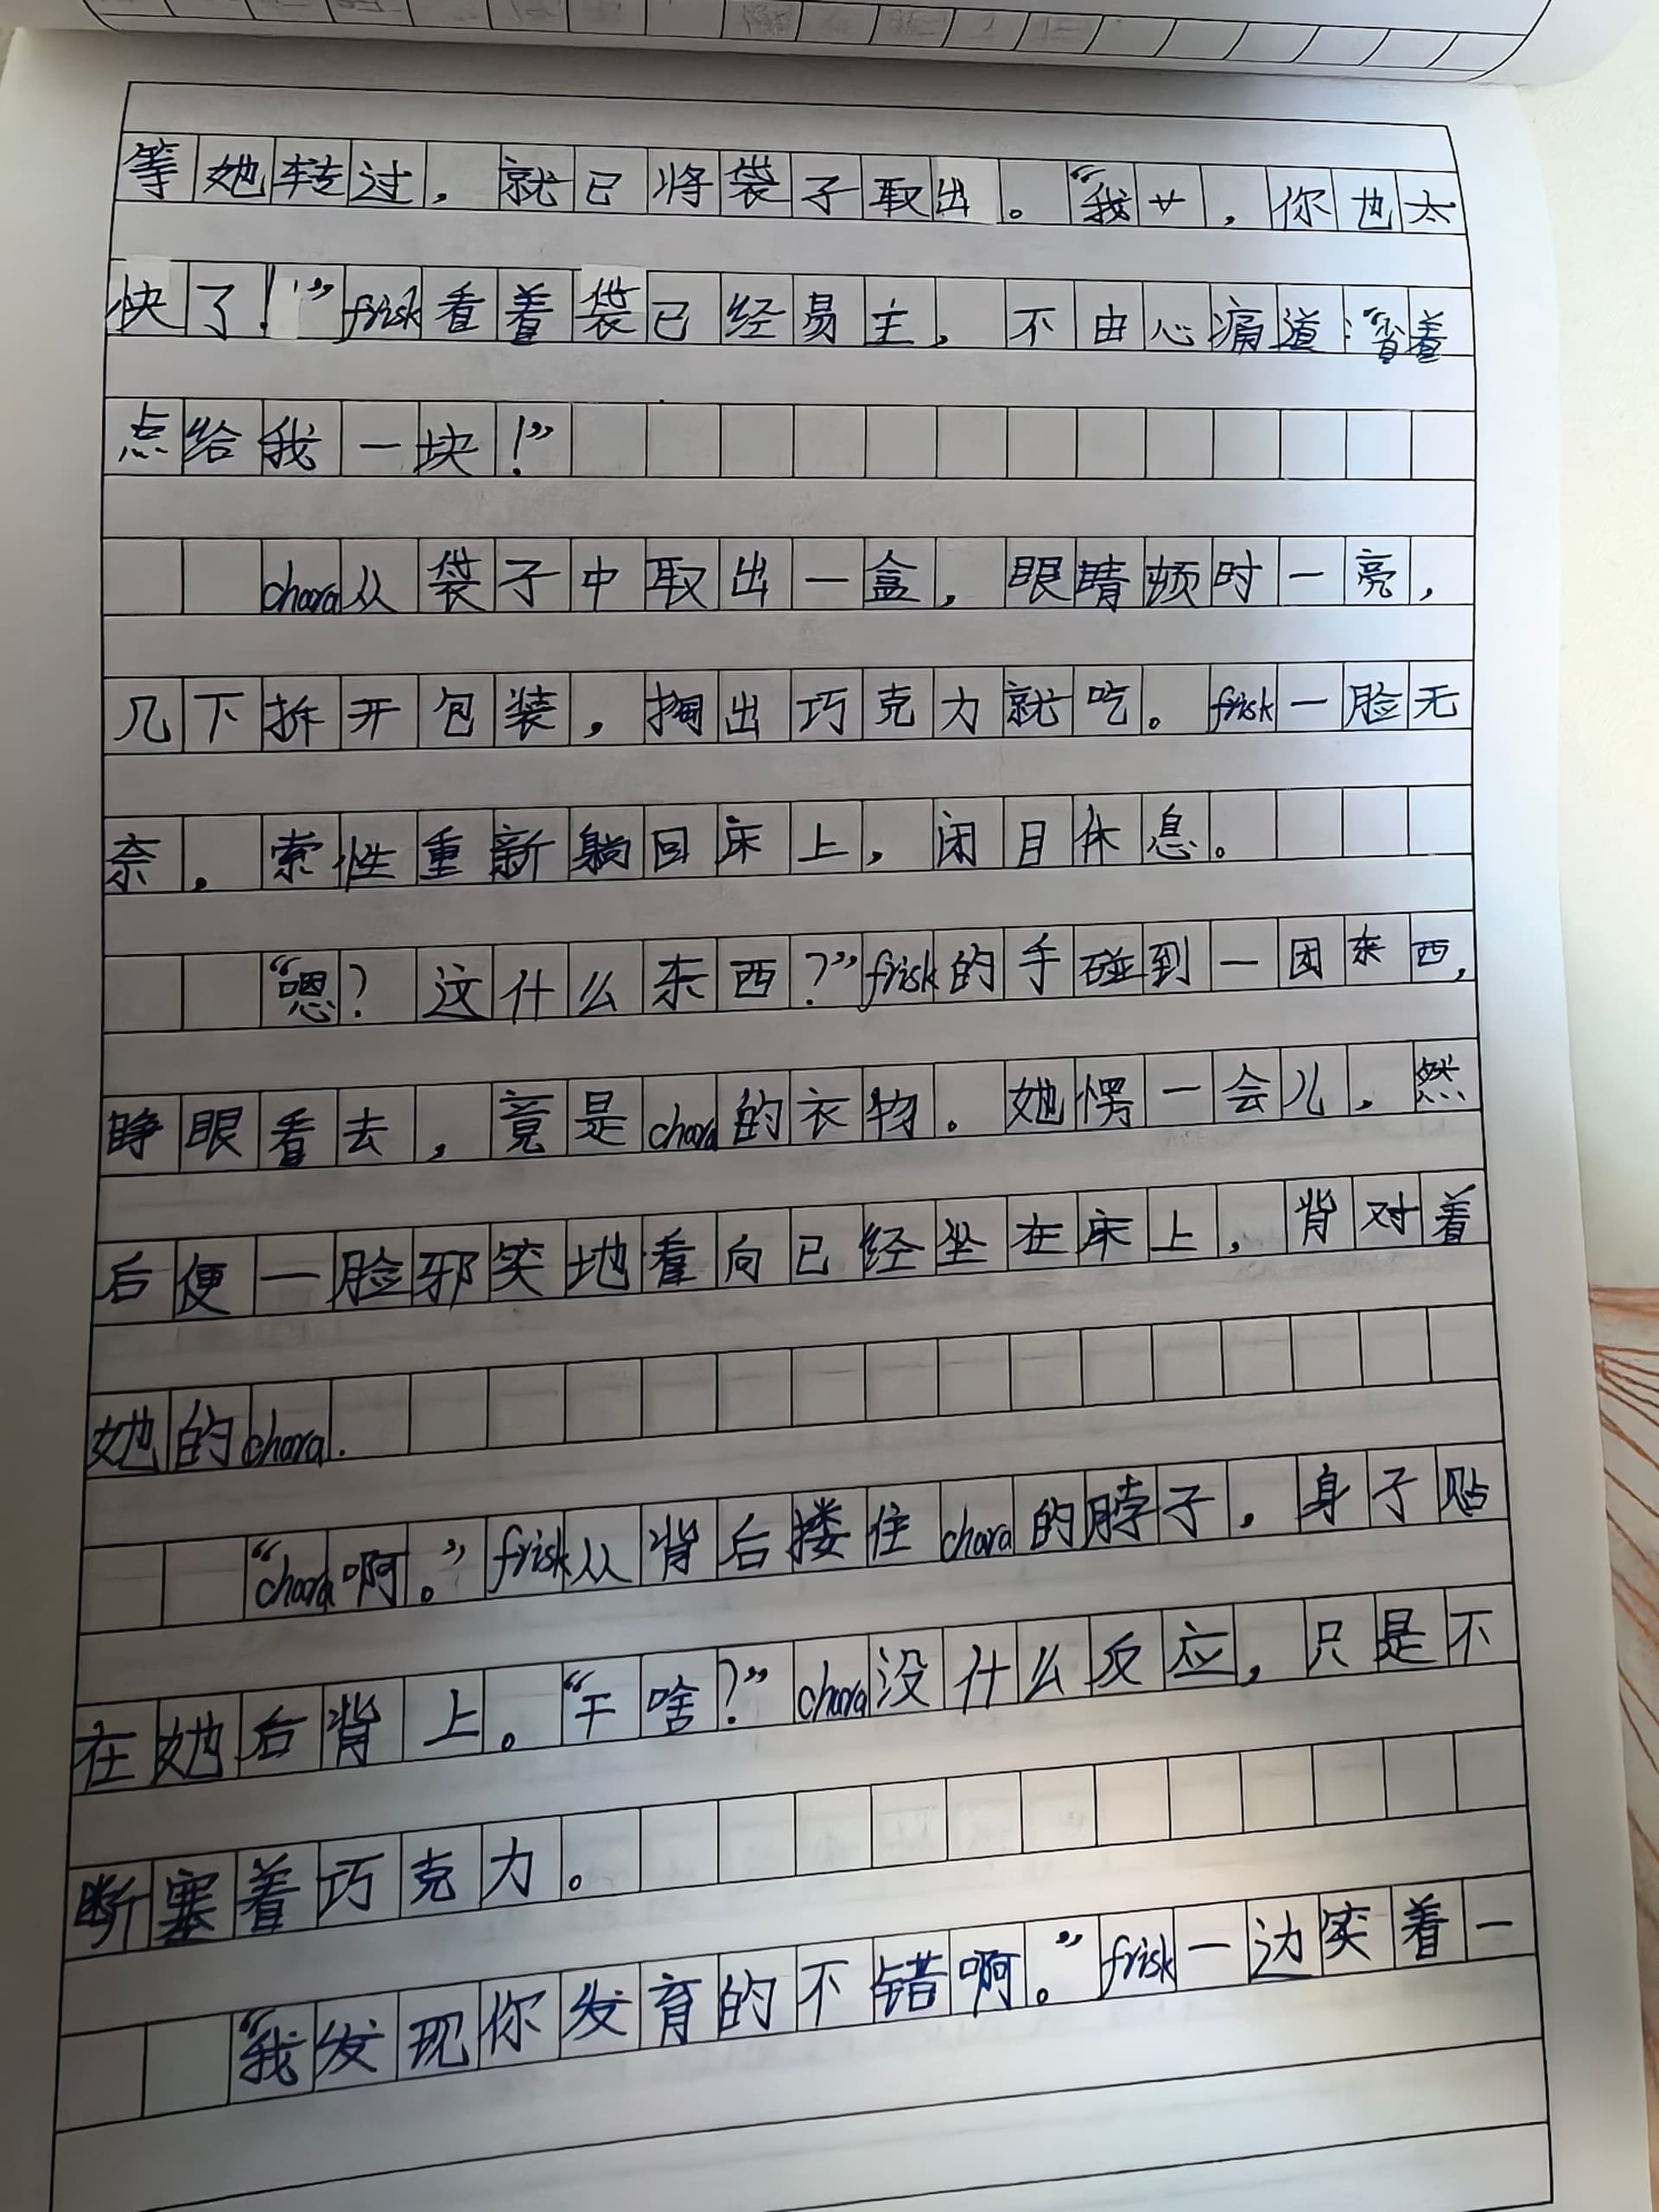 等她转过，就已将袋子取出。“我艹，你也太
快了！”frisk看着袋已经易主，不由心痛道：“省着
点给我一块！”
chara从袋子中取出一盒，眼睛顿时一亮，
几下拆开包装，掏出巧克力就吃。frisk一脸无
奈。索性重新躺回床上，闭目休息。
“嗯？这什么东西？”frisk的手碰到一团东西，
睁眼看去，竟是chara的衣物。她愣一会儿，然
后便一脸邪笑地看向已经坐在床上，背对着
她的chara.
“chara啊。”frisk从背后搂住chara的脖子，身子贴
在她后背上。“干啥？”chara没什么反应，只是不
断塞着巧克力。
“我发现你发育的不错啊。”frisk一边笑着一